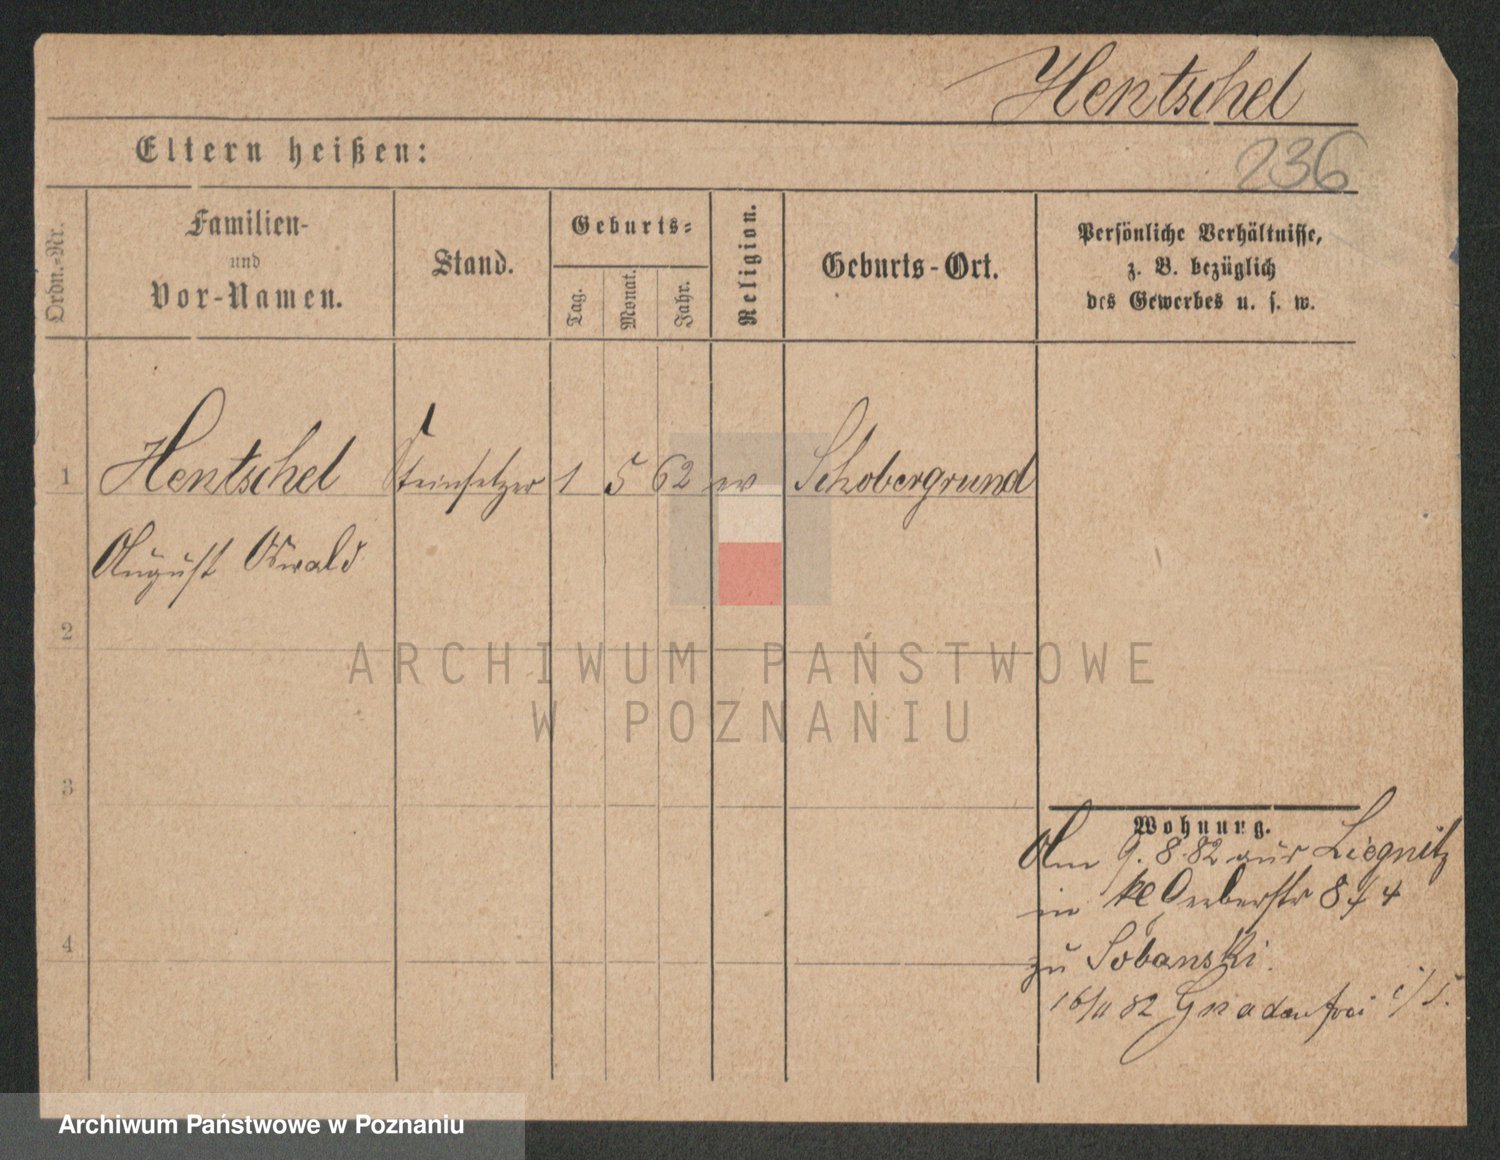 Hentschel
236
Eltern heißen:
Ordn.-Nr.
Familien-
und
Vor-Namen.
Stand.
Geburts-
Tag.
Monat.
Jahr.
Religion.
Geburts-Ort.
Persönliche Verhältnisse,
z. B. bezüglich
des Gewerbes u. s. w.
1 Hentschel Steinsetzer 1 5 62 ev Schobergrund
August Oswald
2
3
4
ARCHIWUM PAŃSTWOWE
W POZNANIU
Wohnung.
Am 9. 8. 82 aus Liegnitz
in 8/4
zu Sobanski.
16/11 82 Gnadenfrei i/S.
Archiwum Państwowe w Poznaniu